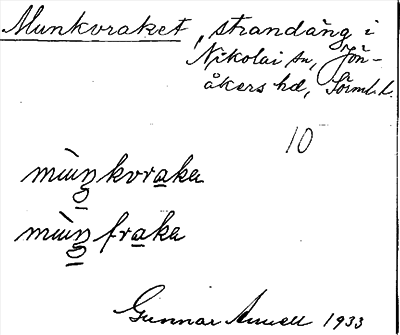 Munkvraket, strandäng i
Nikolai sn, Jön-
åkers hd, Sörml. l.
10
mùŋkvraka
mùŋfraka
Gunnar 1933